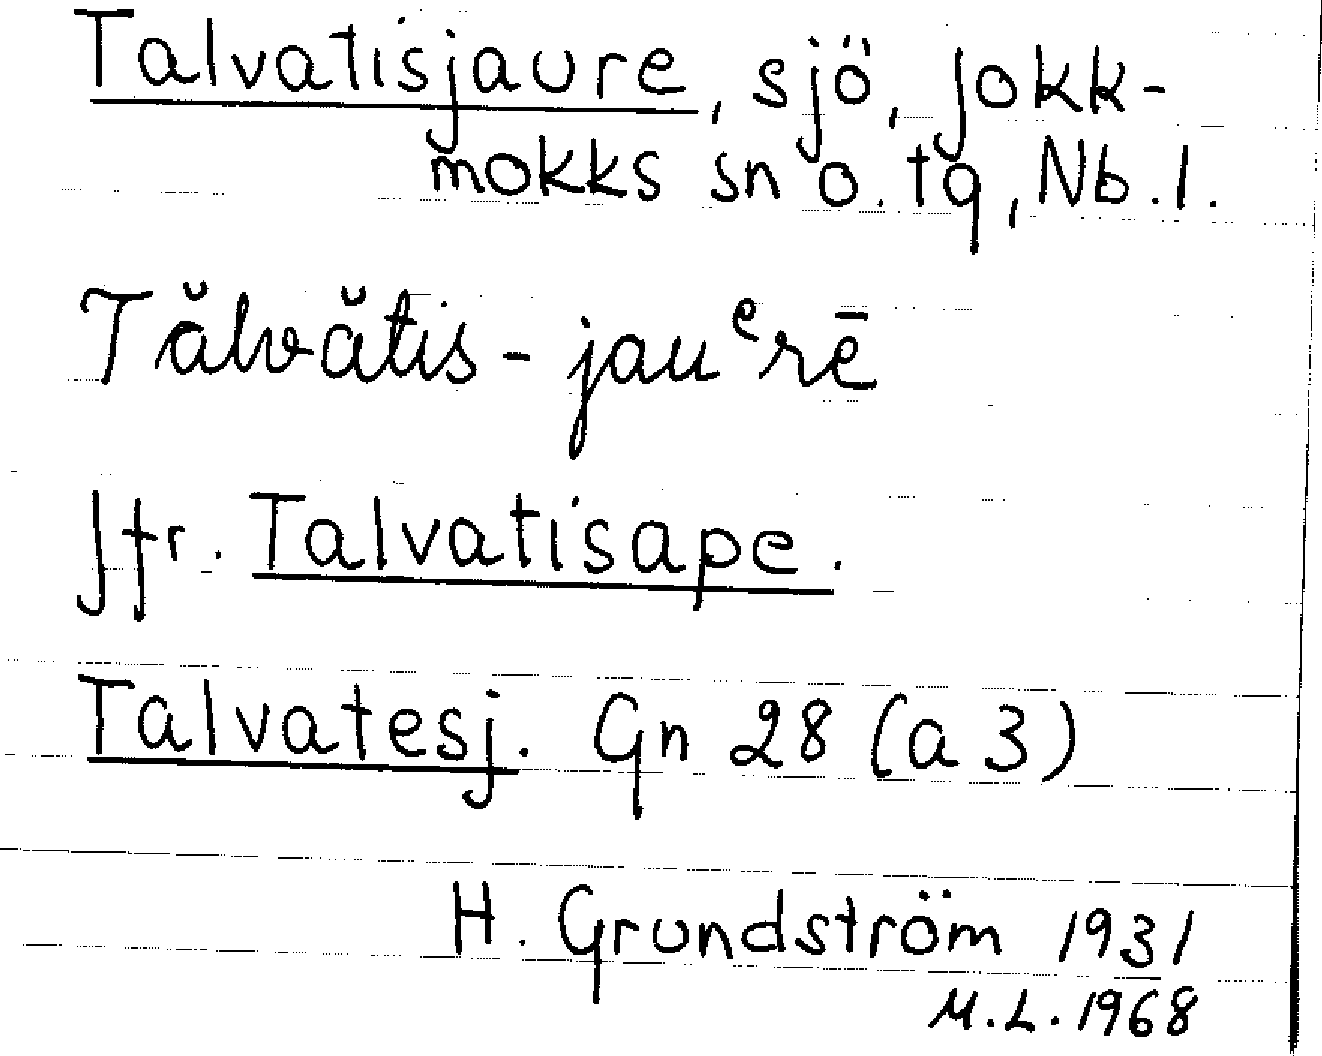 Talvatisjaure, sjö, Jokk-
mokks sn o. tg, Nb. l.
Tălvătis-jauᵉrē
Jfr. Talvatisape.
Talvatesj. Gn 28 (a 3)
H. Grundström 1931
M.L. 1968